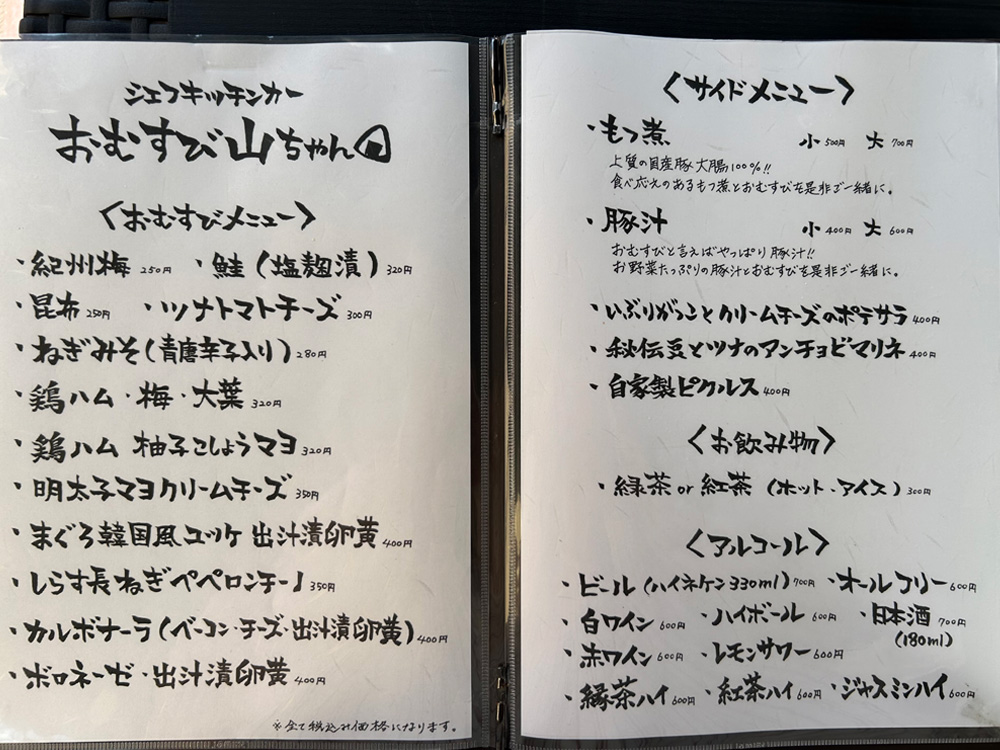 シェフキッチンカー
おむすび山ちゃん
〈おむすびメニュー〉
・紀州梅 250円 ・鮭(塩麹漬) 320円
・昆布 250円 ・ツナトマトチーズ 300円
・ねぎみそ(青唐辛子入り) 280円
・鶏ハム・梅・大葉 320円
・鶏ハム 柚子こしょうマヨ 320円
・明太子マヨクリームチーズ 350円
・まぐろ韓国風ユッケ 出汁漬卵黄 400円
・しらす長ねぎペペロンチーノ 350円
・カルボナーラ(ベーコン・チーズ・出汁漬卵黄) 400円
・ボロネーゼ・出汁漬卵黄 400円
※全て税込み価格になります。
〈サイドメニュー〉
・もつ煮 小 500円 大 700円
上質の国産豚大腸100%!!
食べ応えのあるもつ煮とおむすびを是非ご一緒に。
・豚汁 小 400円 大 600円
おむすびと言えばやっぱり豚汁!!
お野菜たっぷりの豚汁とおむすびを是非ご一緒に。
・いぶりがっことクリームチーズのポテサラ 400円
・秘伝豆とツナのアンチョビマリネ 400円
・自家製ピクルス 400円
〈お飲み物〉
・緑茶 or 紅茶 (ホット・アイス) 300円
〈アルコール〉
・ビール(ハイネケン330ml) 700円 ・オールフリー 600円
・白ワイン 600円 ・ハイボール 600円 ・日本酒 700円
(180ml)
・赤ワイン 600円 ・レモンサワー 600円
・緑茶ハイ 600円 ・紅茶ハイ 600円 ・ジャスミンハイ 600円